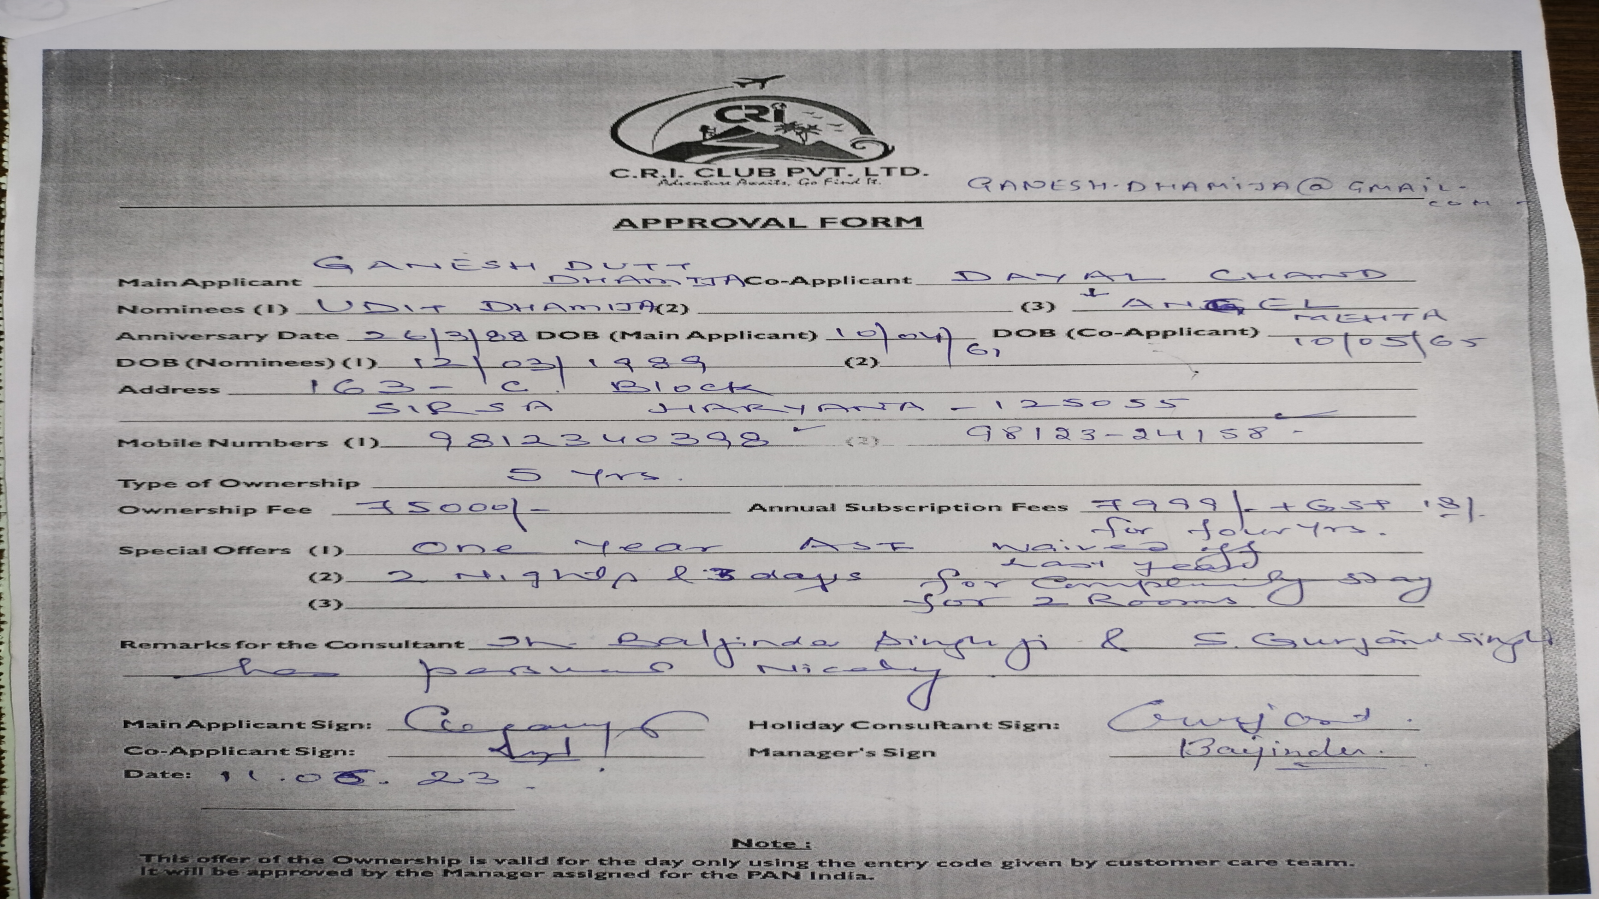 CRI
C.R.I. CLUB PVT. LTD.
Adventure Awaits, Go Find It.
GANESH.DHAMIJA@GMAIL.
COM
APPROVAL FORM
Main Applicant GANESH DUTT DHAMIJA Co-Applicant DAYAL CHAND
Nominees (1) UDIT DHAMIJA (2) (3) ANGEL MEHTA
Anniversary Date 26/3/88 DOB (Main Applicant) 10/04/61 DOB (Co-Applicant) 10/05/65
DOB (Nominees) (1) 12/03/1989 (2)
Address 163- C Block
SIRSA HARYANA - 125055
Mobile Numbers (1) 9812340398 (2) 98123-24158-
Type of Ownership 5 Yrs.
Ownership Fee 75000/- Annual Subscription Fees 7999/- + GST 18%
for four yrs.
Special Offers (1) One Year ASF waived off
last year
(2) 2 Nights & 3 days for Complementry stay
(3) for 2 Rooms
Remarks for the Consultant Sh. Baljinder Singh ji & S. Gurjant Singh
has Nicely
Main Applicant Sign: Holiday Consultant Sign: Gurjant.
Co-Applicant Sign: Manager's Sign Baljinder.
Date: 11.05.23
Note :
This offer of the Ownership is valid for the day only using the entry code given by customer care team.
It will be approved by the Manager assigned for the PAN India.